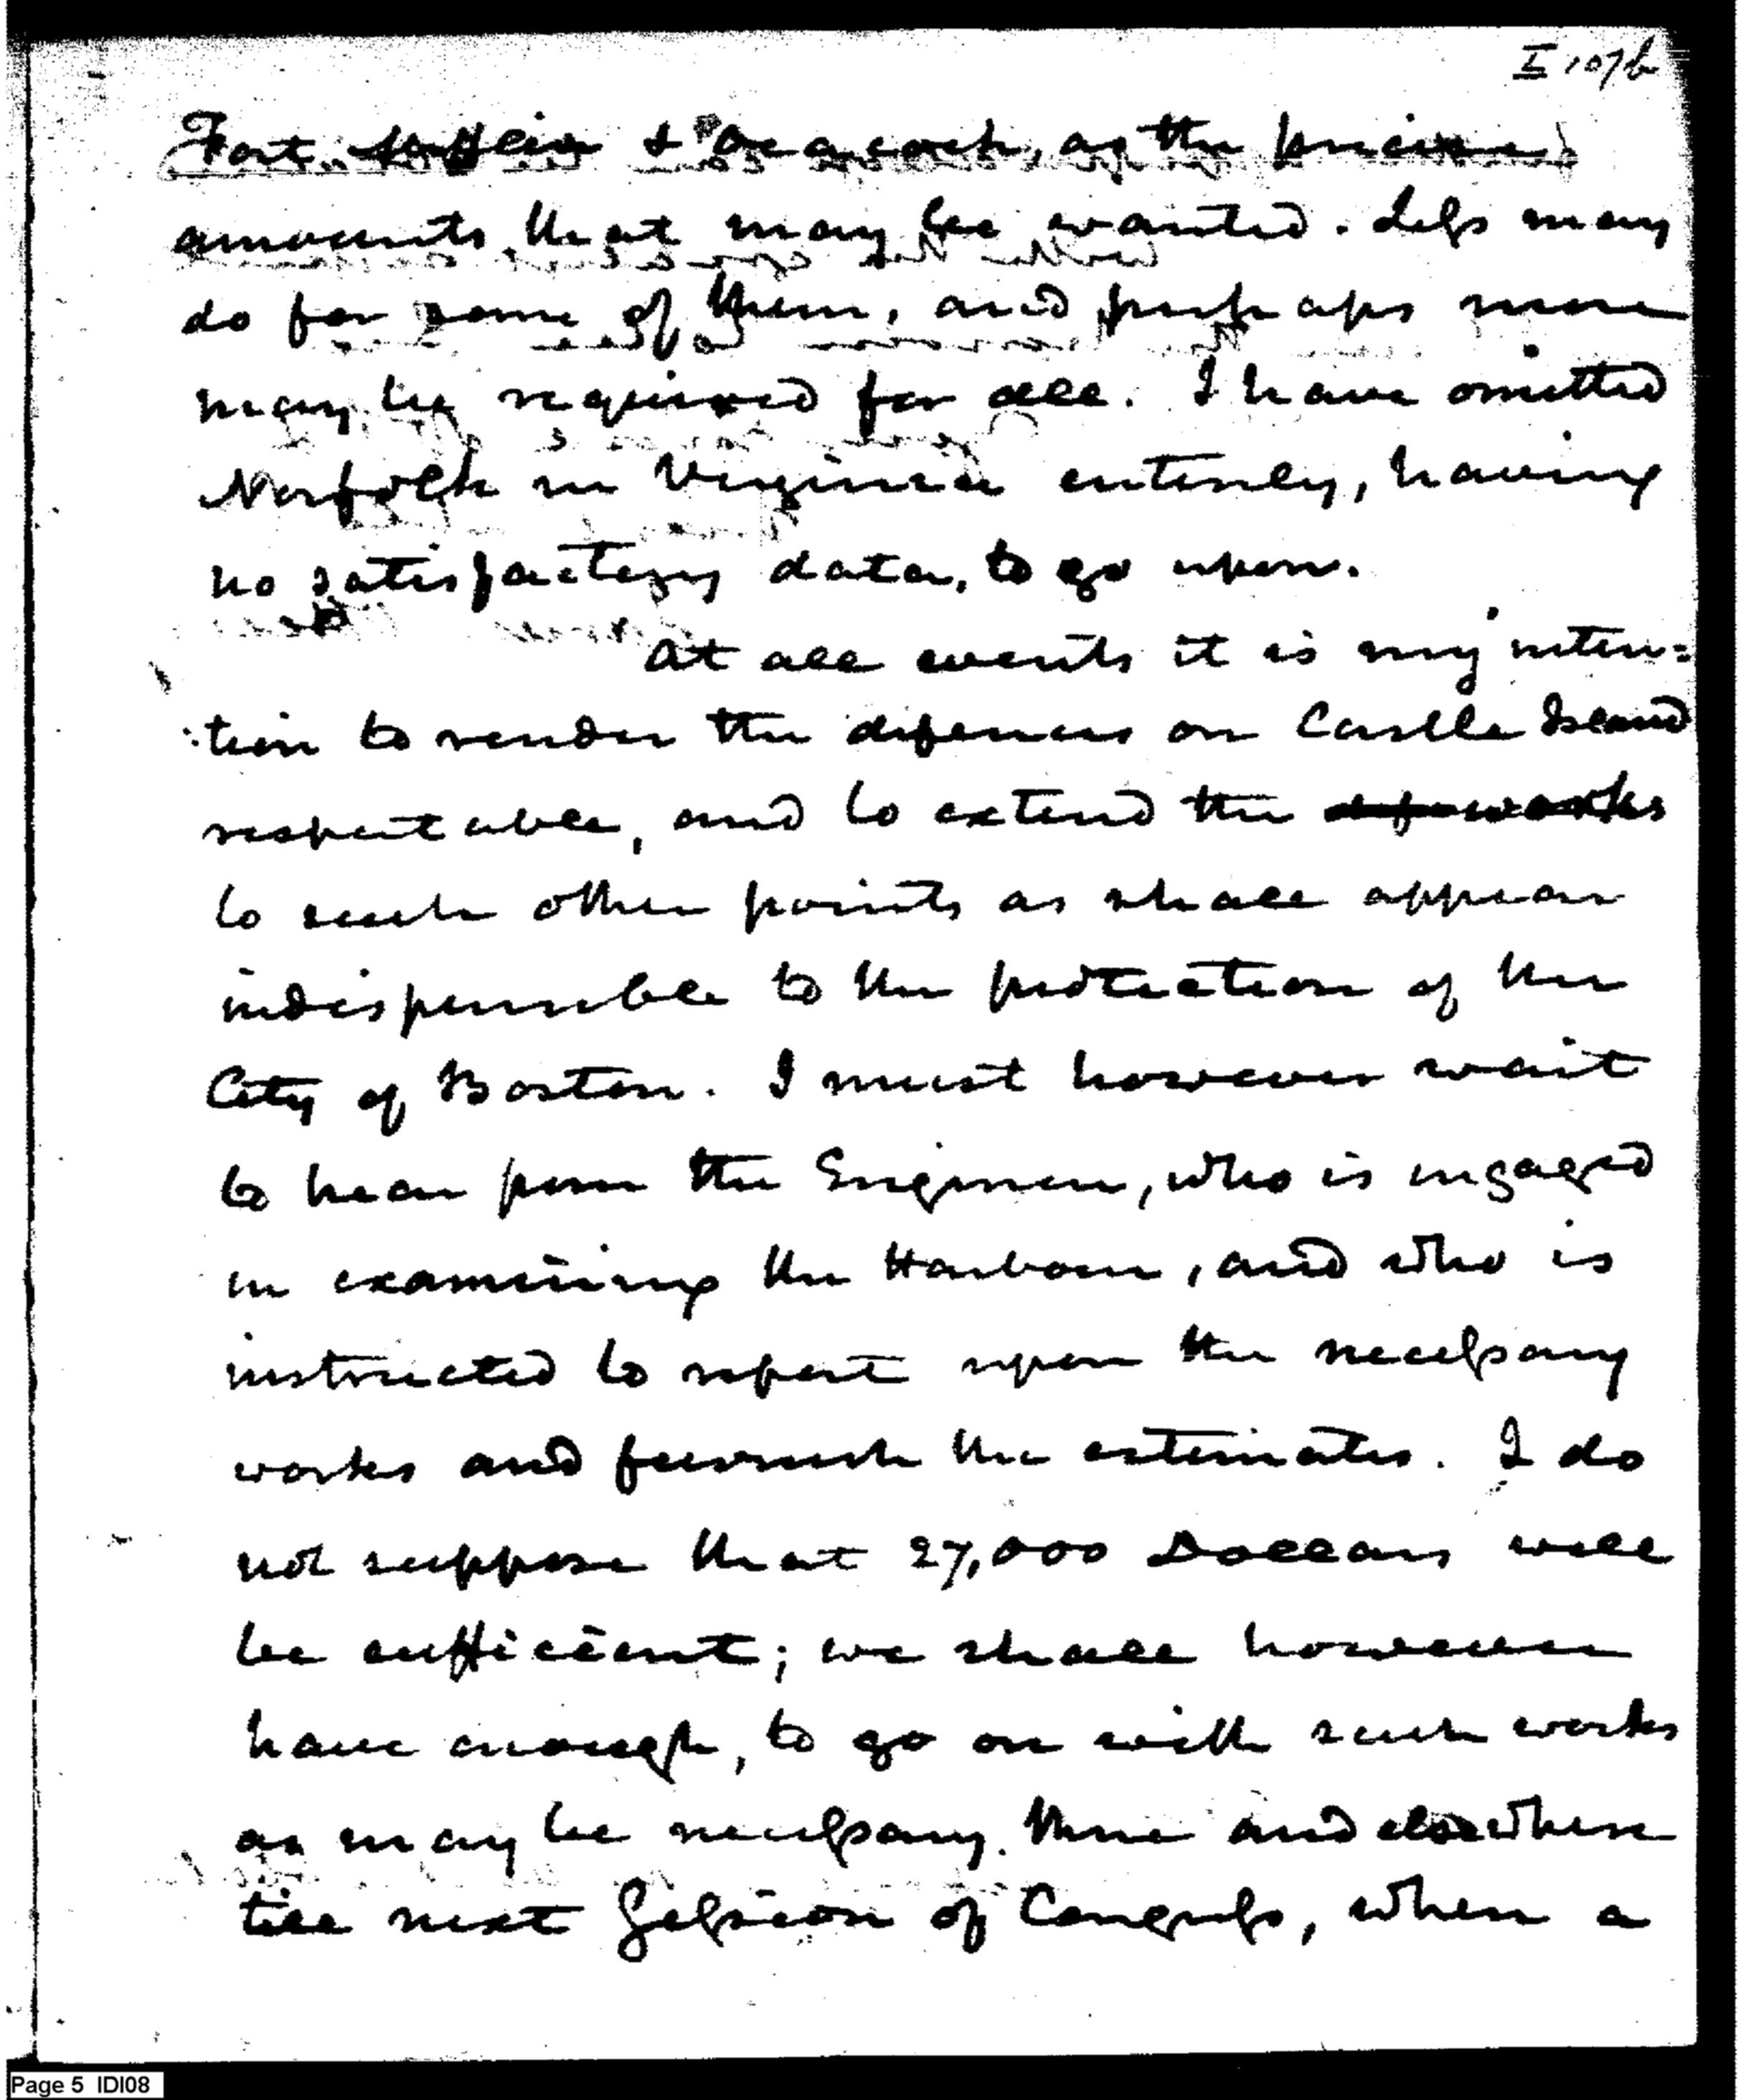 I 107b
Fort Mifflin & Ocacock, as the precise
amounts that may be wanted. Less may
do for some of them, and perhaps more
may be required for all. I have omitted
Norfolk in Virginia entirely, having
no satisfactory data, to go upon.
At all events it is my inten=
:tion to render the defences on Castle Island
respectable, and to extend the works
to such other points as shall appear
indispensible to the protection of the
City of Boston. I must however wait
to hear from the Engineer, who is engaged
in examining the Harbour, and who is
instructed to report upon the necessary
works and furnish the estimates. I do
not suppose that 27,000 Dollars will
be sufficient; we shall however
have enough, to go on with such works
as may be necessary. there and elsewhere
till next Session of Congress, when a
Page 5 IDI08